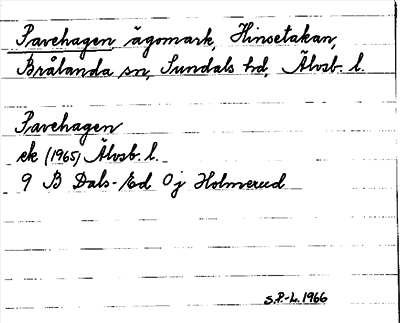 Pavehagen, ägomark, Hinsetakan,
Brålanda sn, Sundals hd, Älvsb. l.
Pavehagen
ek (1965) Älvsb. l.
9 B Dals-Ed 0j Holmerud
S.P.-L. 1966